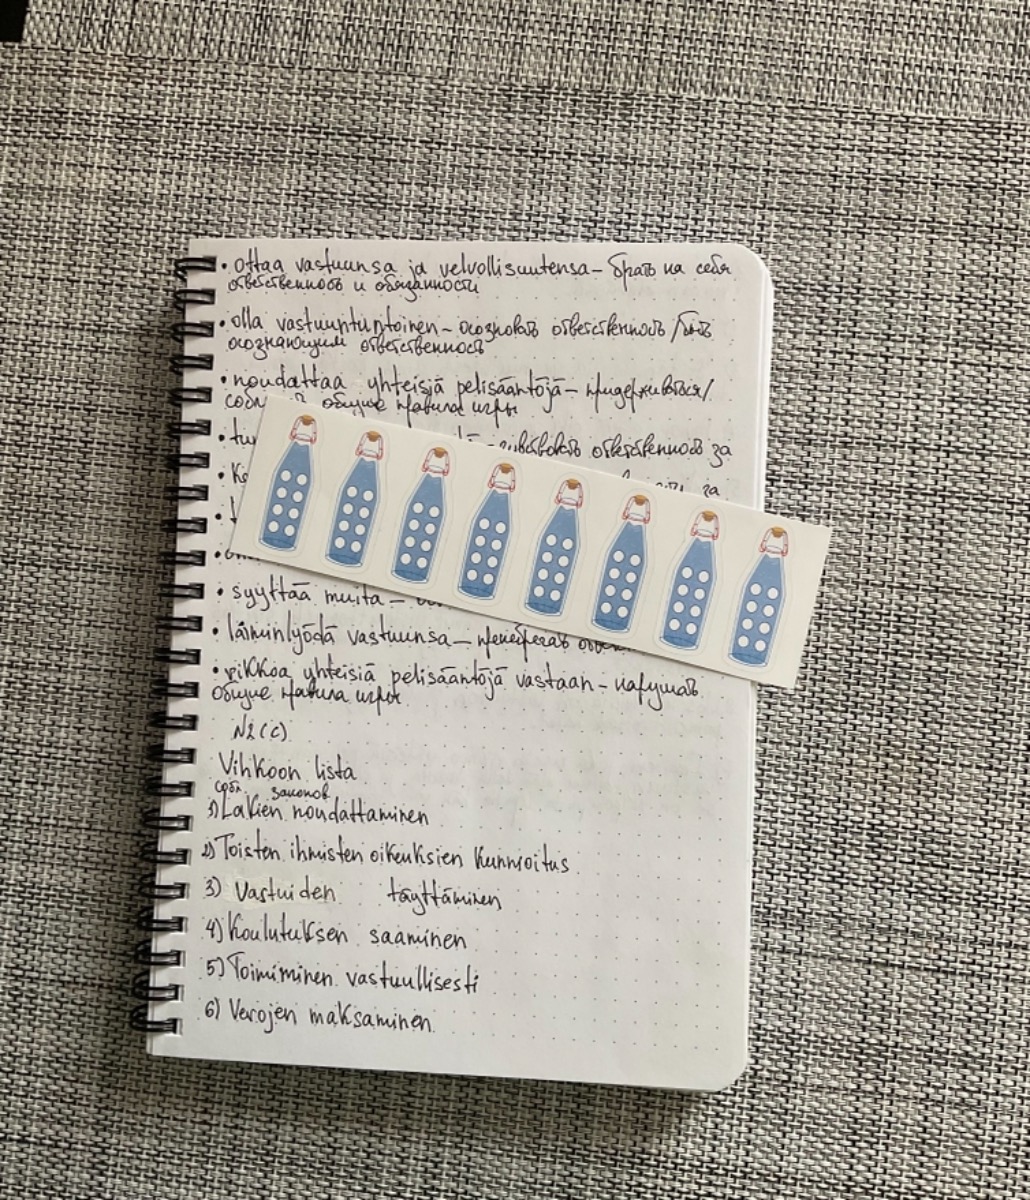 • Ottaa vastuunsa ja velvollisuutensa – брать на себя
ответственность и обязанности
• olla vastuuntuntoinen – осознавать ответственность / быть
осознающим ответственность
• noudattaa yhteisiä pelisääntöjä – придерживаться /
общие правила игры
ответственность за
за
• syyttää muita –
• laiminlyödä vastuunsa – пренебрегать
• rikkoa yhteisiä pelisääntöjä vastaan – нарушать
общие правила игры
N2 (c)
Vihkoon lista
собл. законов
1) Lakien noudattaminen
2) Toisten ihmisten oikeuksien kunnioitus
3) Vastuiden täyttäminen
4) Koulutuksen saaminen
5) Toimiminen vastuullisesti
6) Verojen maksaminen